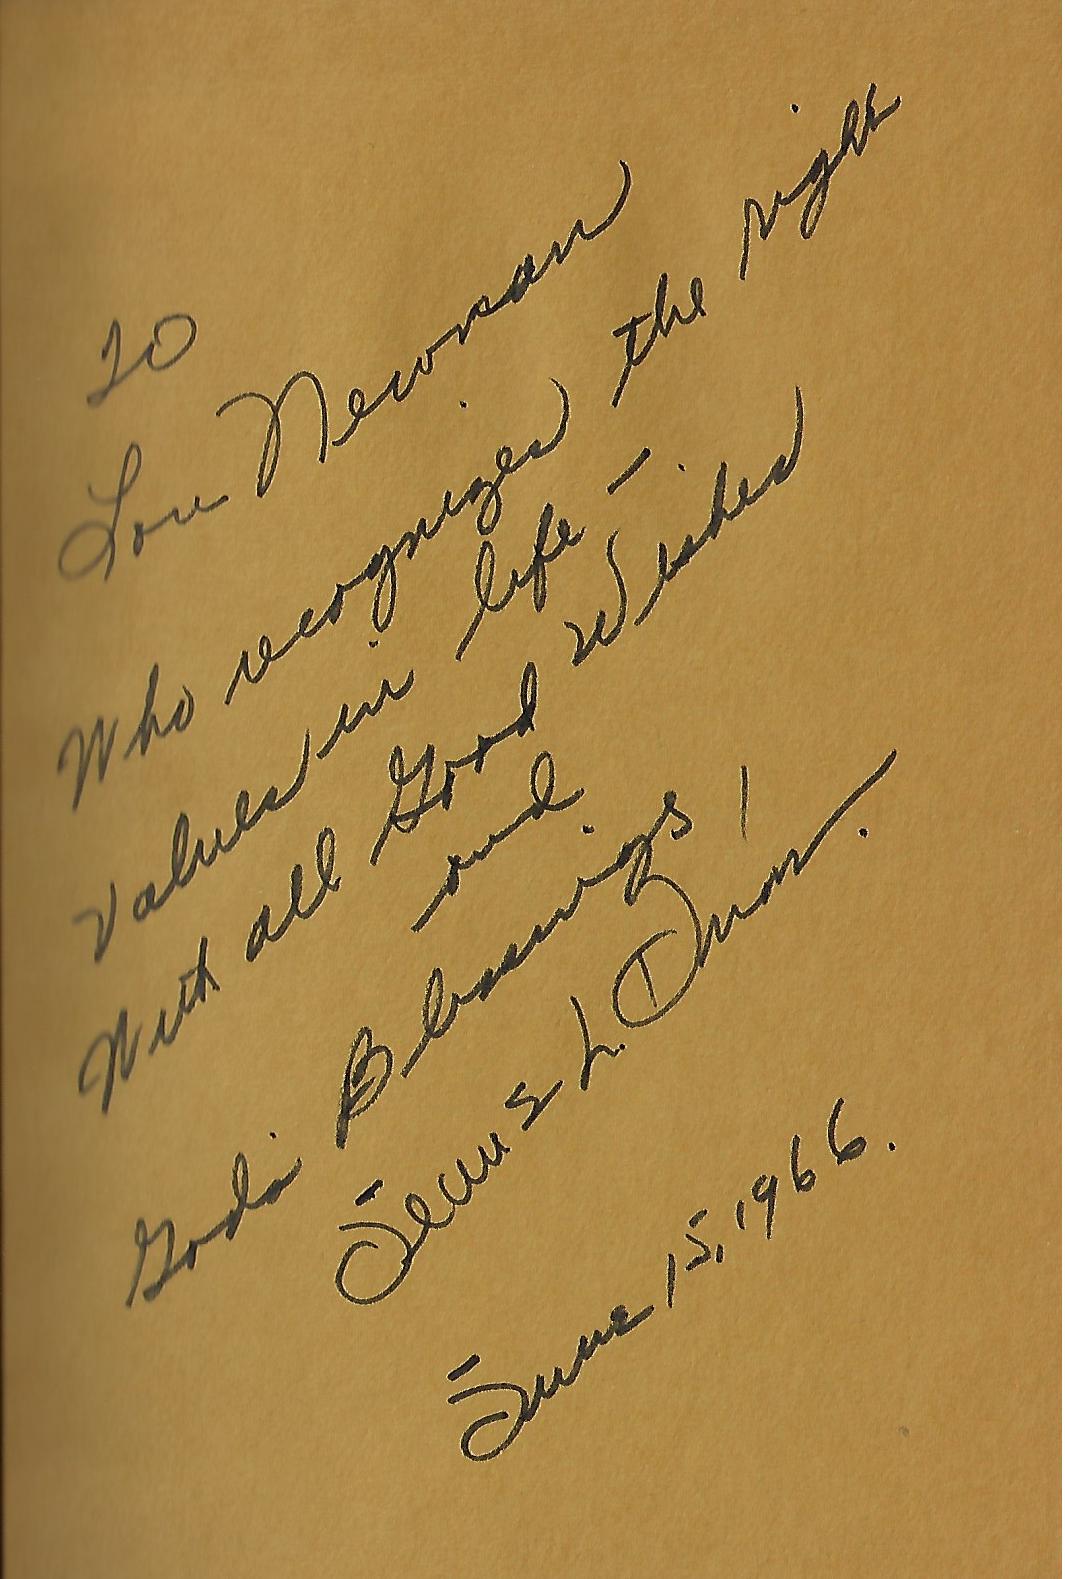 To
Lou Newman
Who recognizes the right
Values in life –
With all Good Wishes
and
Gods Blessings!
L.
June 15, 1966.